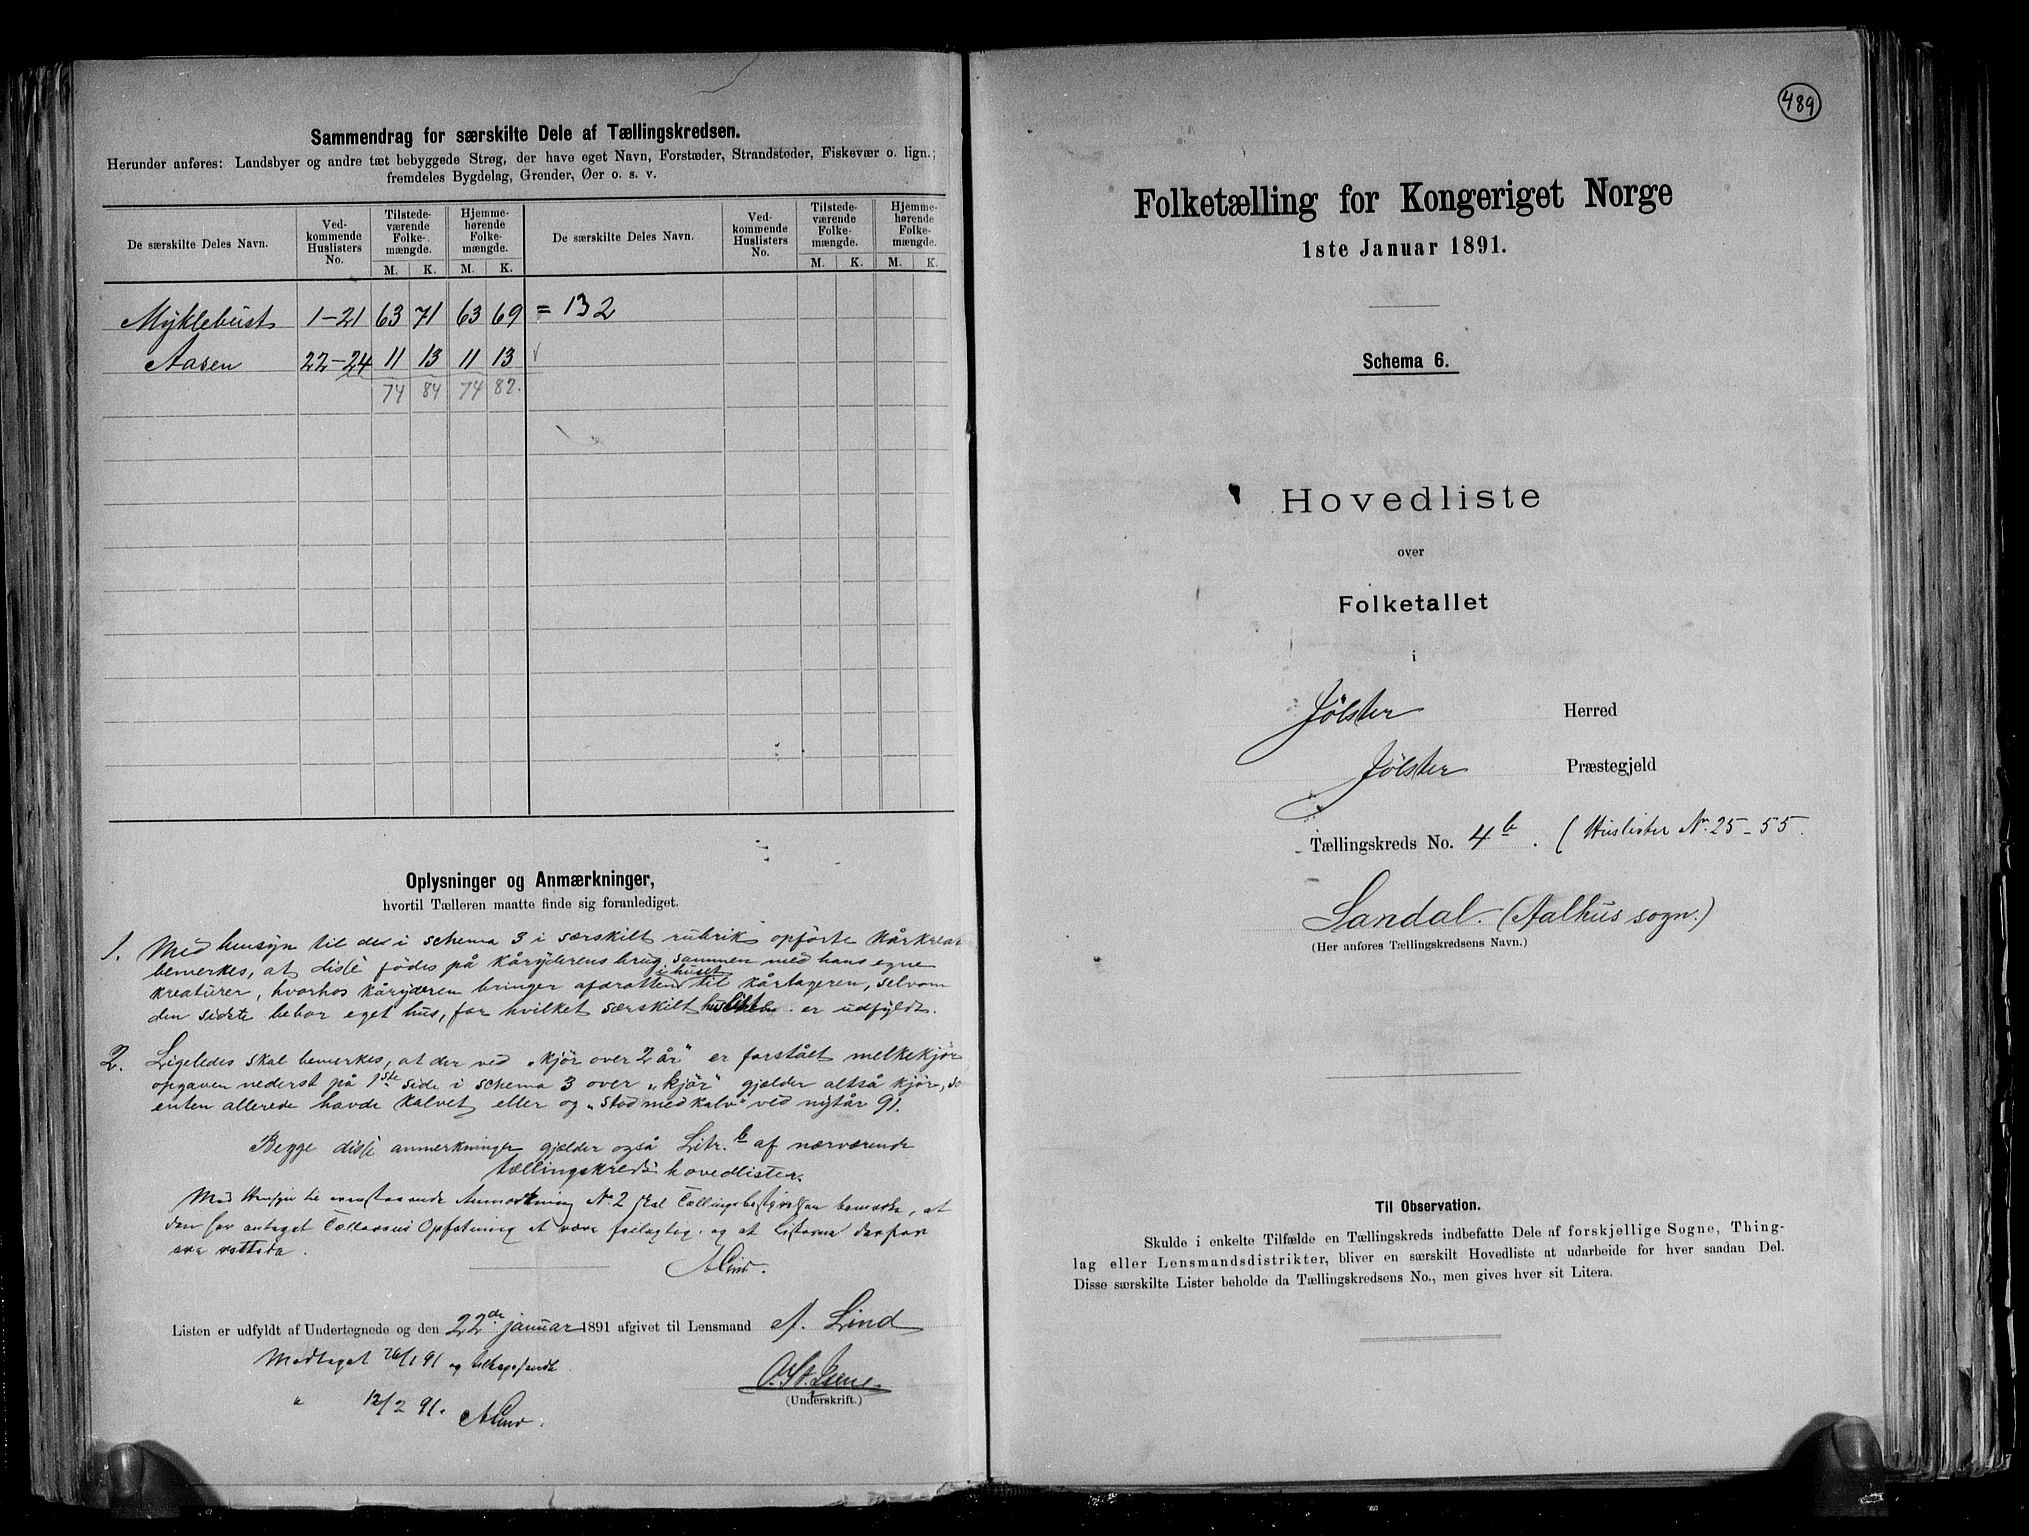 Sammendrag for særskilte Dele af Tællingskredsen.
Herunder anføres: Landsbyer og andre tæt bebyggede Strøg, der have eget Navn, Forstæder, Strandsteder, Fiskevær o. lign.;
fremdeles Bygdelag, Grender, Øer o. s. v.
De særskilte Deles Navn. Ved-kommende Huslisters No. Tilstede-værende Folke-mængde. Hjemme-hørende Folke-mængde. De særskilte Deles Navn. Ved-kommende Huslisters No. Tilstede-værende Folke-mængde. Hjemme-hørende Folke-mængde.
M. K. M. K. M. K. M. K.
Myklebust 1-21 63 71 63 69 = 132
Aasen 22-24 11 13 11 13 √
74 84 74 82.
Oplysninger og Anmærkninger,
hvortil Tælleren maatte finde sig foranlediget.
1. Med hensyn til de i schema 3 i særskilt rubrik opførte kårkreat
bemerkes, at disse fødes på kåryderens brug sammen med hans egne
kreaturer, hvorhos kåryderen bringer afdrotten i huset til kårtageren, selvom
den sidste bebor eget hus, for hvilket særskilt er udfyldt.
2. Ligeledes skal bemerkes, at der ved „kjør over 2 år“ er forstået melkekjør
opgaven nederst på 1ste side i schema 3 over „kjør“ gjælder altså kjør, so
enten allerede havde kalvet eller og „stod med kalv“ ved nytår 91.
Begge disse anmerkninger gjælder også Litr. b af nærværende
tællingskreds hovedlister.
Med Hensyn til ovenstaaende Anmærkning No 2 skal Tællingsbestyrelsen bemærke, at
den har antaget Tællerens Opfatning at være feilagtig, og at Listerne derfor
ere rettede.
ALind.
Listen er udfyldt af Undertegnede og den 22de januar 1891 afgivet til Lensmand A. Lind
Modtaget 26/1 91 og
(Underskrift.)
" 12/2 91. ALind.
489
Folketælling for Kongeriget Norge
1ste Januar 1891.
Schema 6.
Hovedliste
over
Folketallet
i
Jølster Herred
Jølster Præstegjeld
Tællingskreds No. 4 b. (Huslister Nr. 25-55.
Sandal. (Aalhus sogn.)
(Her anføres Tællingskredsens Navn.)
Til Observation.
Skulde i enkelte Tilfælde en Tællingskreds indbefatte Dele af forskjellige Sogne, Thing-
lag eller Lensmandsdistrikter, bliver en særskilt Hovedliste at udarbeide for hver saadan Del.
Disse særskilte Lister beholde da Tællingskredsens No., men gives hver sit Litera.